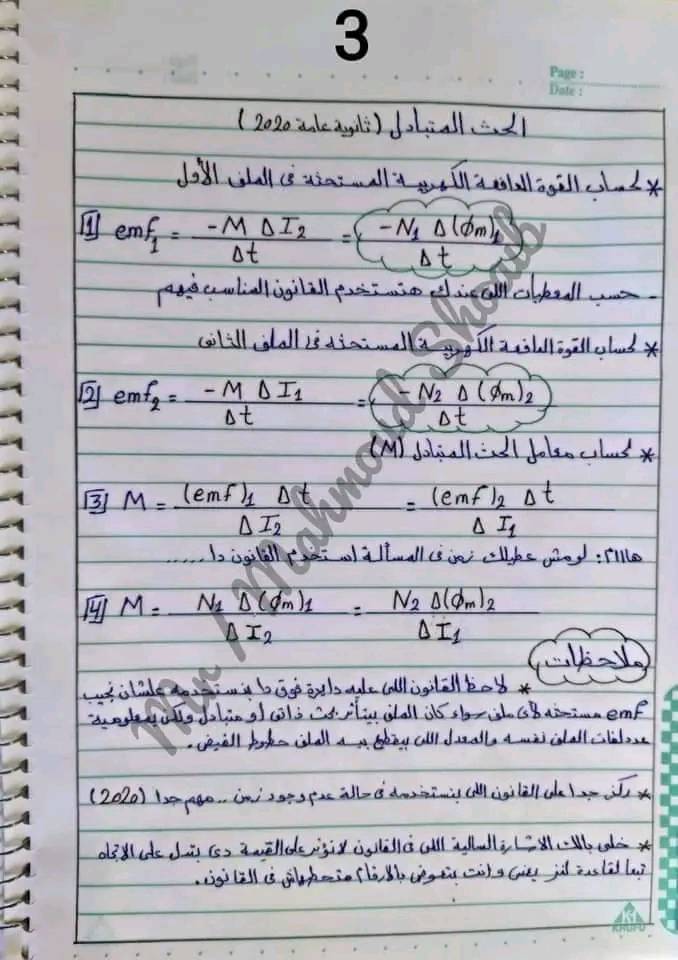 3
Page :
Date :
الحث المتبادل (ثانوية عامة 2020)
* لحساب القوة الدافعة الكهربية المستحثة فى الملف الأول
[1] emf₁ = -M Δ I₂ / Δt = -N₁ Δ(φm)₁ / Δt
- حسب المعطيات اللى عندك هتستخدم القانون المناسب فيهم
* لحساب القوة الدافعة الكهربية المستحثه فى الملف الثانى
[2] emf₂ = -M Δ I₁ / Δt = -N₂ Δ(φm)₂ / Δt
* لحساب معامل الحث المتبادل (M)
[3] M = (emf)₁ Δt / Δ I₂ = (emf)₂ Δt / Δ I₁
هااام: لو مش عطيلك زمن فى المسألة استخدم القانون دا .....
[4] M = N₁ Δ(φm)₁ / Δ I₂ = N₂ Δ(φm)₂ / Δ I₁
ملاحظات
* لاحظ القانون اللى عليه دايرة فوق دا بنستخدمه علشان نجيب
emf مستحثه لأى ملف سواء كان الملف بيتأثر بحث ذاتى أو متبادل ولكن بمعلومية
عدد لفات الملف نفسه والمعدل اللى بيقطع بيه الملف خطوط الفيض.
* ركز جدا على القانون اللى بنستخدمه فى حالة عدم وجود زمن .. مهم جدا (2020)
* خلى بالك الاشارة السالبة اللى فى القانون لا تؤثر على القيمة دى بتدل على الاتجاه
تبعا لقاعدة لنز يعنى و انت بتعوض بالأرقام متحطهاش فى القانون.
Mr / Mahmoud Shoaib
KHUFU